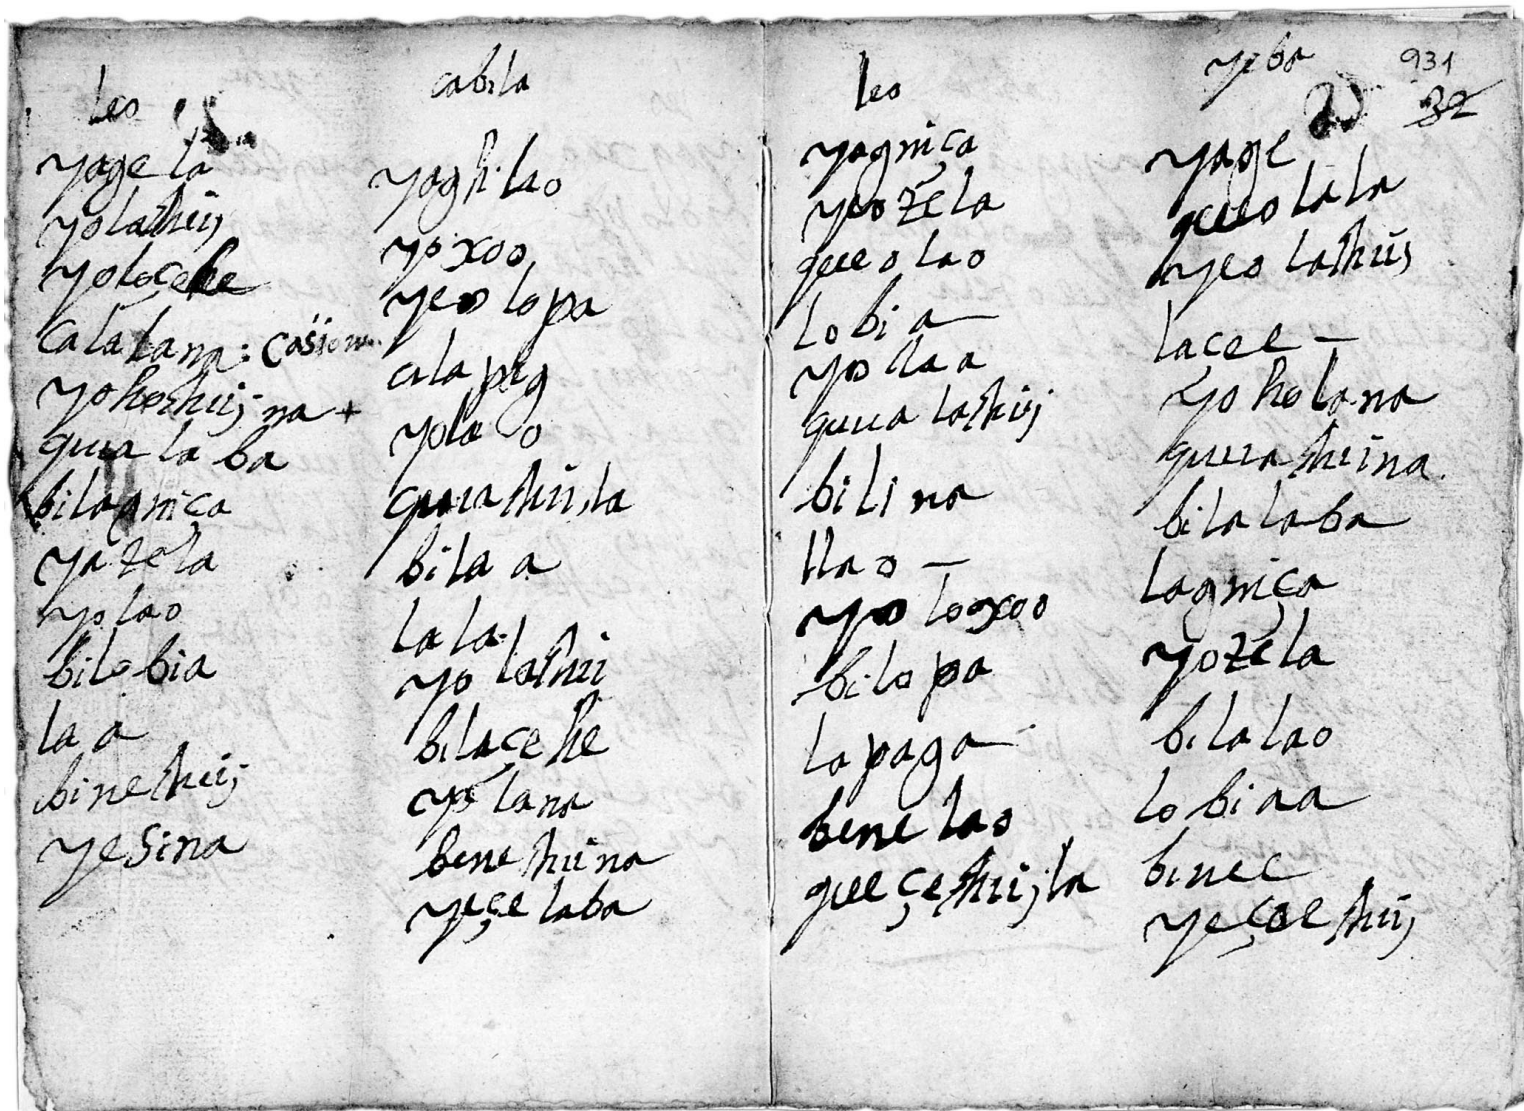 leo
yagela
yolathuij
yoloçehe
calalana: casion
yohohuij na +
quia la ba
bilagniça
yazela
yolao
bilobia
la a
binehuij
yesina
cabila
yaghilao
yoxoo
yeolopa
calapag
yolao
quiahuila
bilaa
lala
yo lahui
bilaçehe
yelana
benehuina
yeçelaba
leo
yagniça
yeozela
queolao
lobia
yolaa
quualahuij
bilina
llao —
yoloxoo
bilopa
lapaga
benelao
queeçehuijla
yeba
931
32
yage
queolala
yeolahuij
laçee —
yoholana
quuahuina
bilalaba
lagniça
yozela
bilalao
lobiaa
binee
yeçoehuij